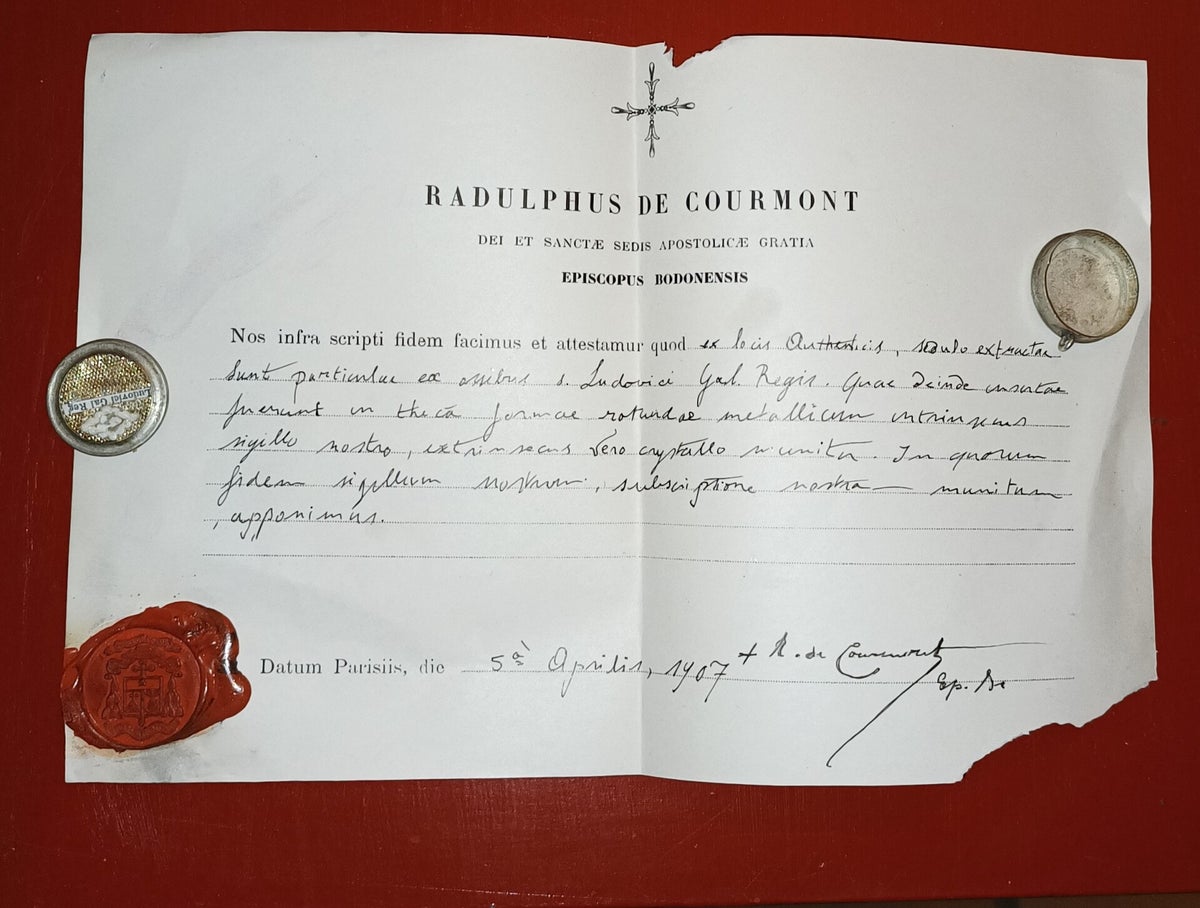 RADULPHUS DE COURMONT
DEI ET SANCTÆ SEDIS APOSTOLICÆ GRATIA
EPISCOPUS BODONENSIS
Nos infra scripti fidem facimus et attestamur quod ex locis Authenticis, sedulo extractae
sunt particulae ex ossibus s. Ludovici Gal. Regis. Quae deinde insertae
fuerunt in thecâ formae rotundae metallicum intrinsecus
sigillo nostro, extrinsecus vero crystallo munita. In quorum
fidem sigillum nostrum, subscriptione nostra munitum
, apponimus.
Ludovici Gal Reg
Datum Parisiis, die 5a Aprilis, 1907 + R. de Courmont
Ep. de